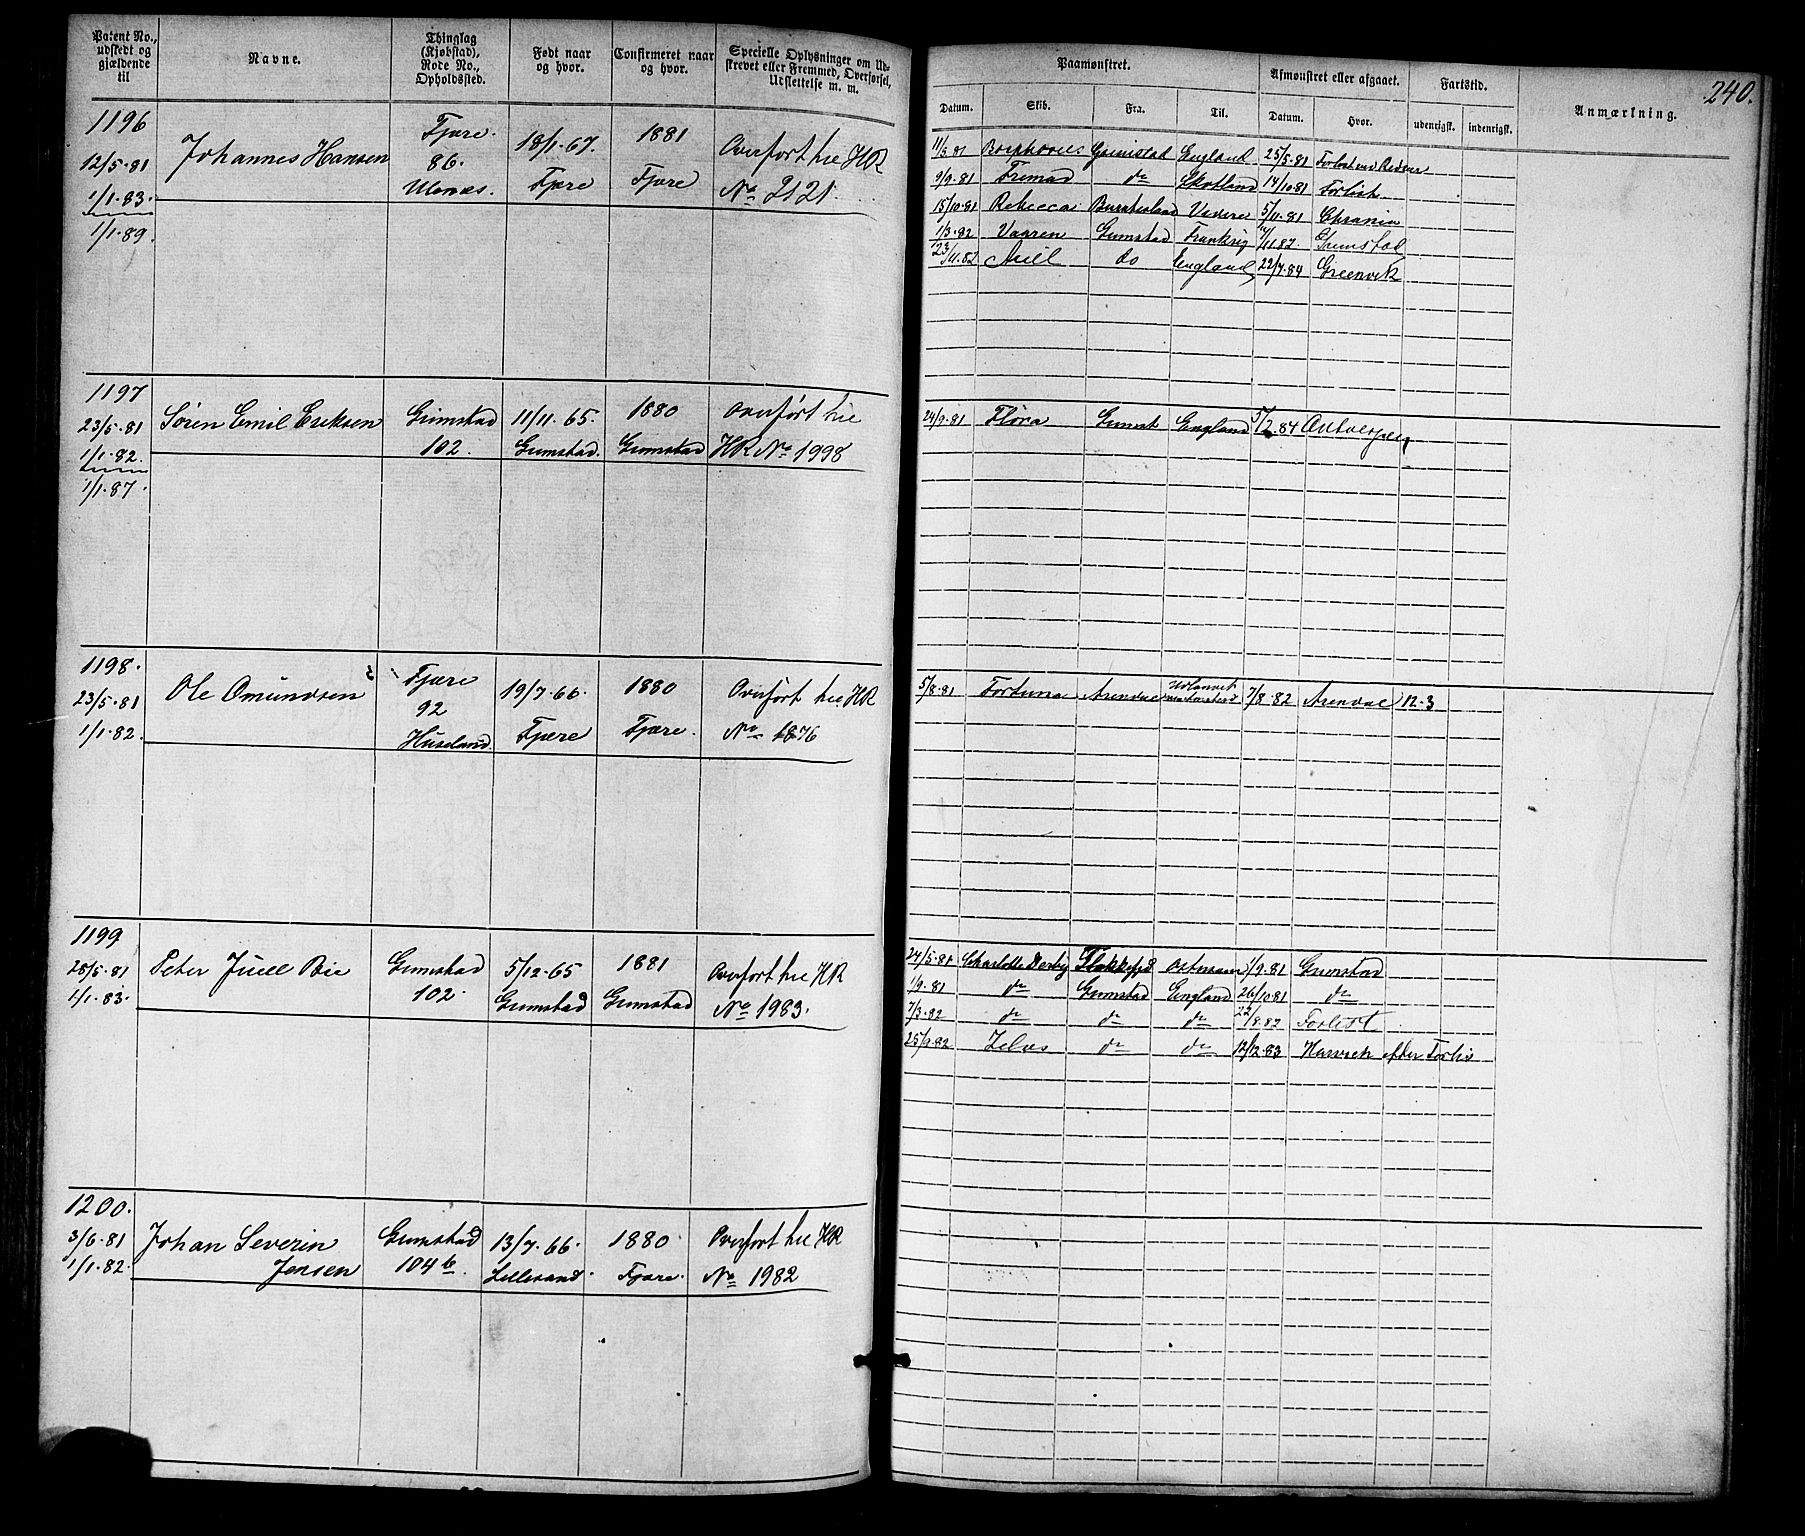 240.
Patent No., udstedt og gjældende til
Navne.
Thinglag (Kjøbstad), Rode No., Opholdssted.
Født naar og hvor.
Confirmeret naar og hvor.
Specielle Oplysninger om Udskrevet eller Fremmed, Overførsel, Udslettelse m. m.
Paamønstret.
Datum.
Skib.
Fra.
Til.
Afmønstret eller afgaaet.
Datum.
Hvor.
Fartstid.
udenrigsk.
indenrigsk.
Anmærkning.
1196
12/5.81
1/1.83.
1/1.89.
Johannes Hansen
Fjære.
86.
18/1.67.
Fjære
1881
Fjære
Overført hie HR
No 2121.
11/5.81 Grimstad England 25/5.81
9/9.81 Fremad do Skotland 14/10.81 Forlist
15/10.81 Rebecca 5/11.81
1/3.82 Vaaren Grimstad Frankrig 11.82 Grimstad
23/11.82 do England 22/7.84 Greenvik
1197
23/5.81
1/1.82.
1/1.87.
Søren Emil Eriksen
Grimstad
102.
11/11.65.
Grimstad.
1880
Grimstad
Overført hie
HR No 1998
24/9.81 Flora Grimst England 5/2.84 Antverpen
1198.
23/5.81
1/1.82.
Ole Omundsen
Fjære
92
Huseland
19/7.66.
Fjære
1880
Fjære.
Overført hie HR
No 1876
5/8.81 Fortuna Arendal 7/8.82 Arendal 12.3
1199
28/5.81
1/1.83.
Peter Juell Bie
Grimstad
102.
5/12.65
Grimstad
1881
Grimstad
Overført hie HR
No 1983.
24/5.81 Charlotte Derby 1/9.81 Grimstad
1/9.81 do Grimstad England 26/10.81 do
7/3.82 do do do 22/8.82 Forlist
25/9.82 do do 12/12.83 efter Forlis
1200.
3/6.81
1/1.82.
Johan Severin
Jensen
Grimstad
104 b.
13/7.66.
Lillesand.
1880.
Fjære.
Overført hie HR
No 1982